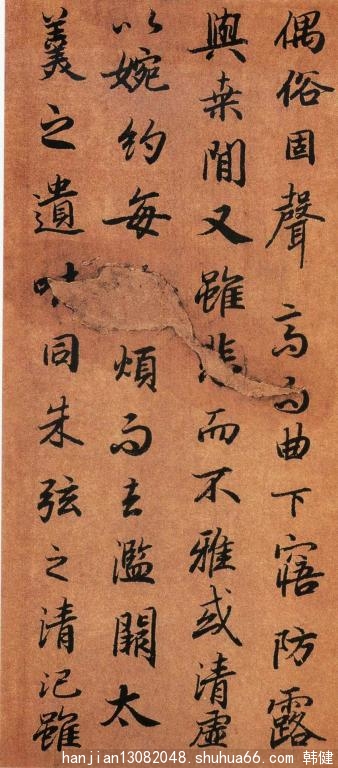 偶俗固聲高而曲下寤防露
與桑閒又雖悲而不雅或清虛
以婉約每煩而去濫闕太
羹之遺味同朱弦之清汜雖
hanjian13082048.shuhua66.com 韩健